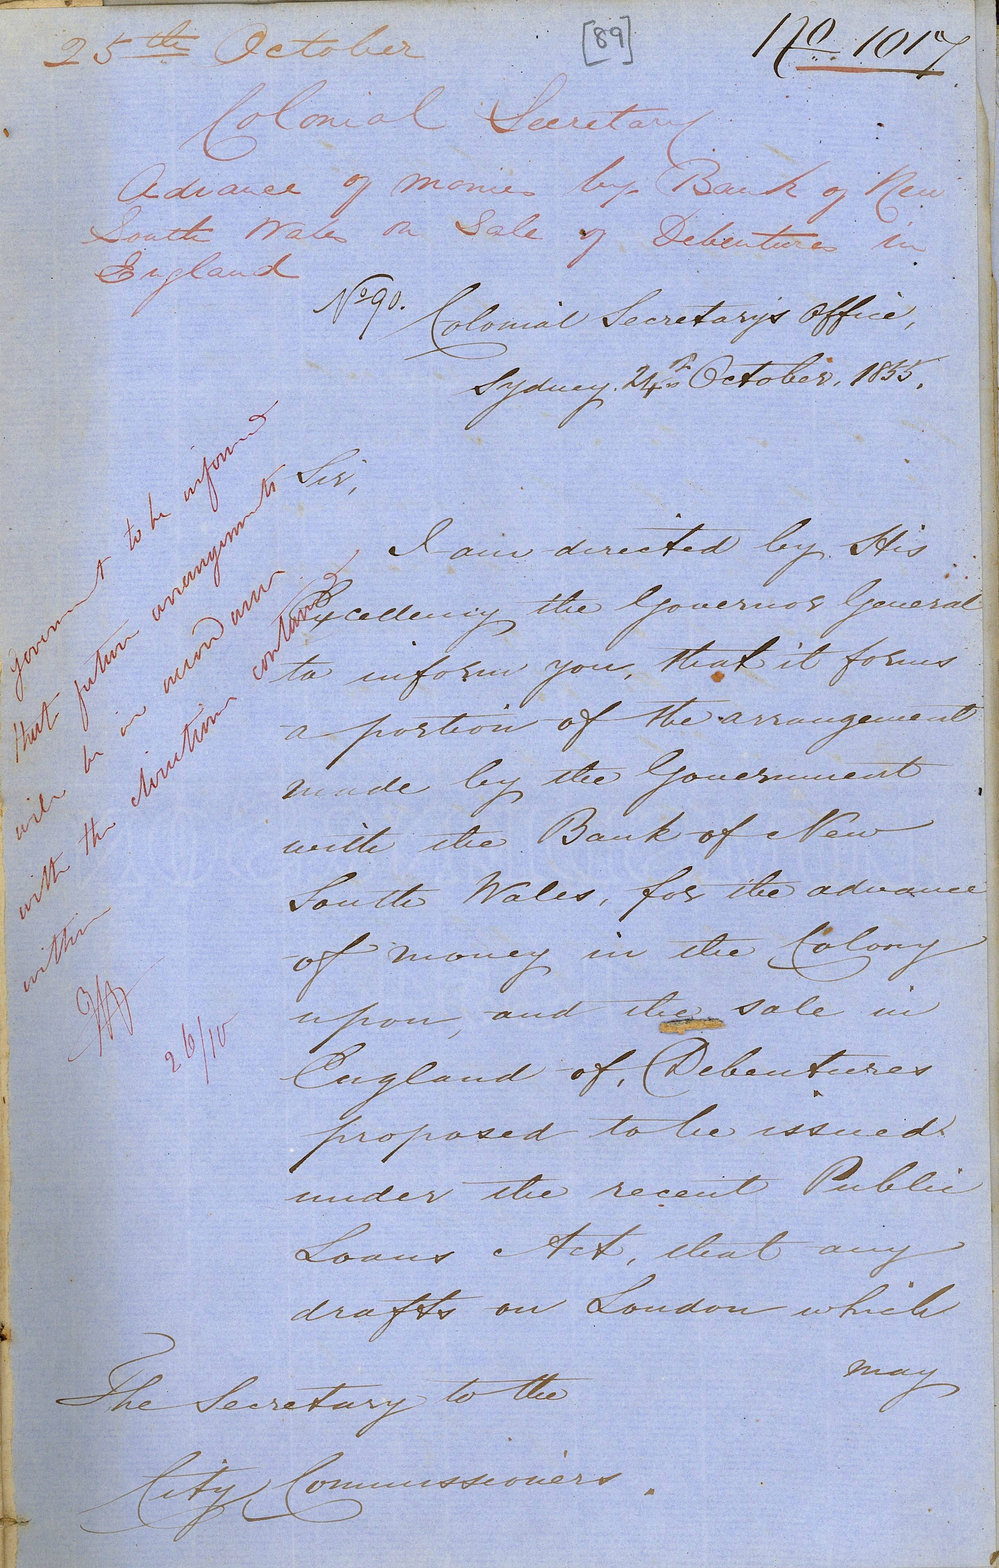 25th October
[89]
No 1017
Colonial Secretary
Advance of monies by Bank of New
South Wales on Sale of Debentures in
England
No 90. Colonial Secretary's Office,
Sydney, 24th October, 1855.
Government to be informed
that future arrangements
will be in accordance
with the directions contained
within
26/10
Sir,
I am directed by His
Excellency the Governor General
to inform you, that it forms
a portion of the arrangement
made by the Government
with the Bank of New
South Wales, for the advance
of money in the Colony
upon, and the sale in
England of, Debentures
proposed to be issued
under the recent Public
Loans Act, that any
drafts on London which
may
The Secretary to the
City Commissioners.